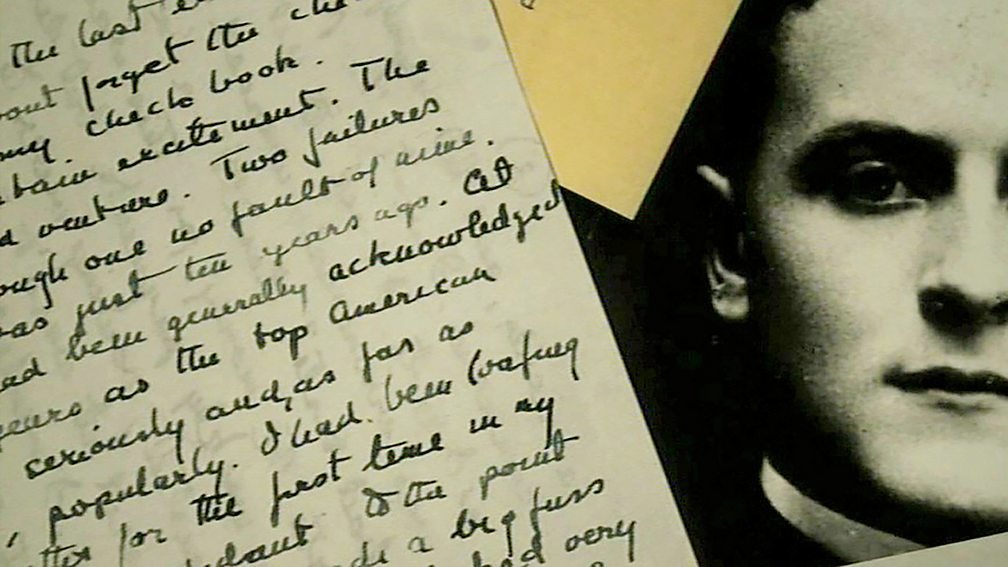 The last
about forget the
my check book.
excitement. The
venture. Two failures
though one no fault of mine.
was just ten years ago. At
had been generally acknowledged
years as the top American
seriously and, as far as
, popularly. I had been loafing
for the first time in my
to the point
a big fuss
had very